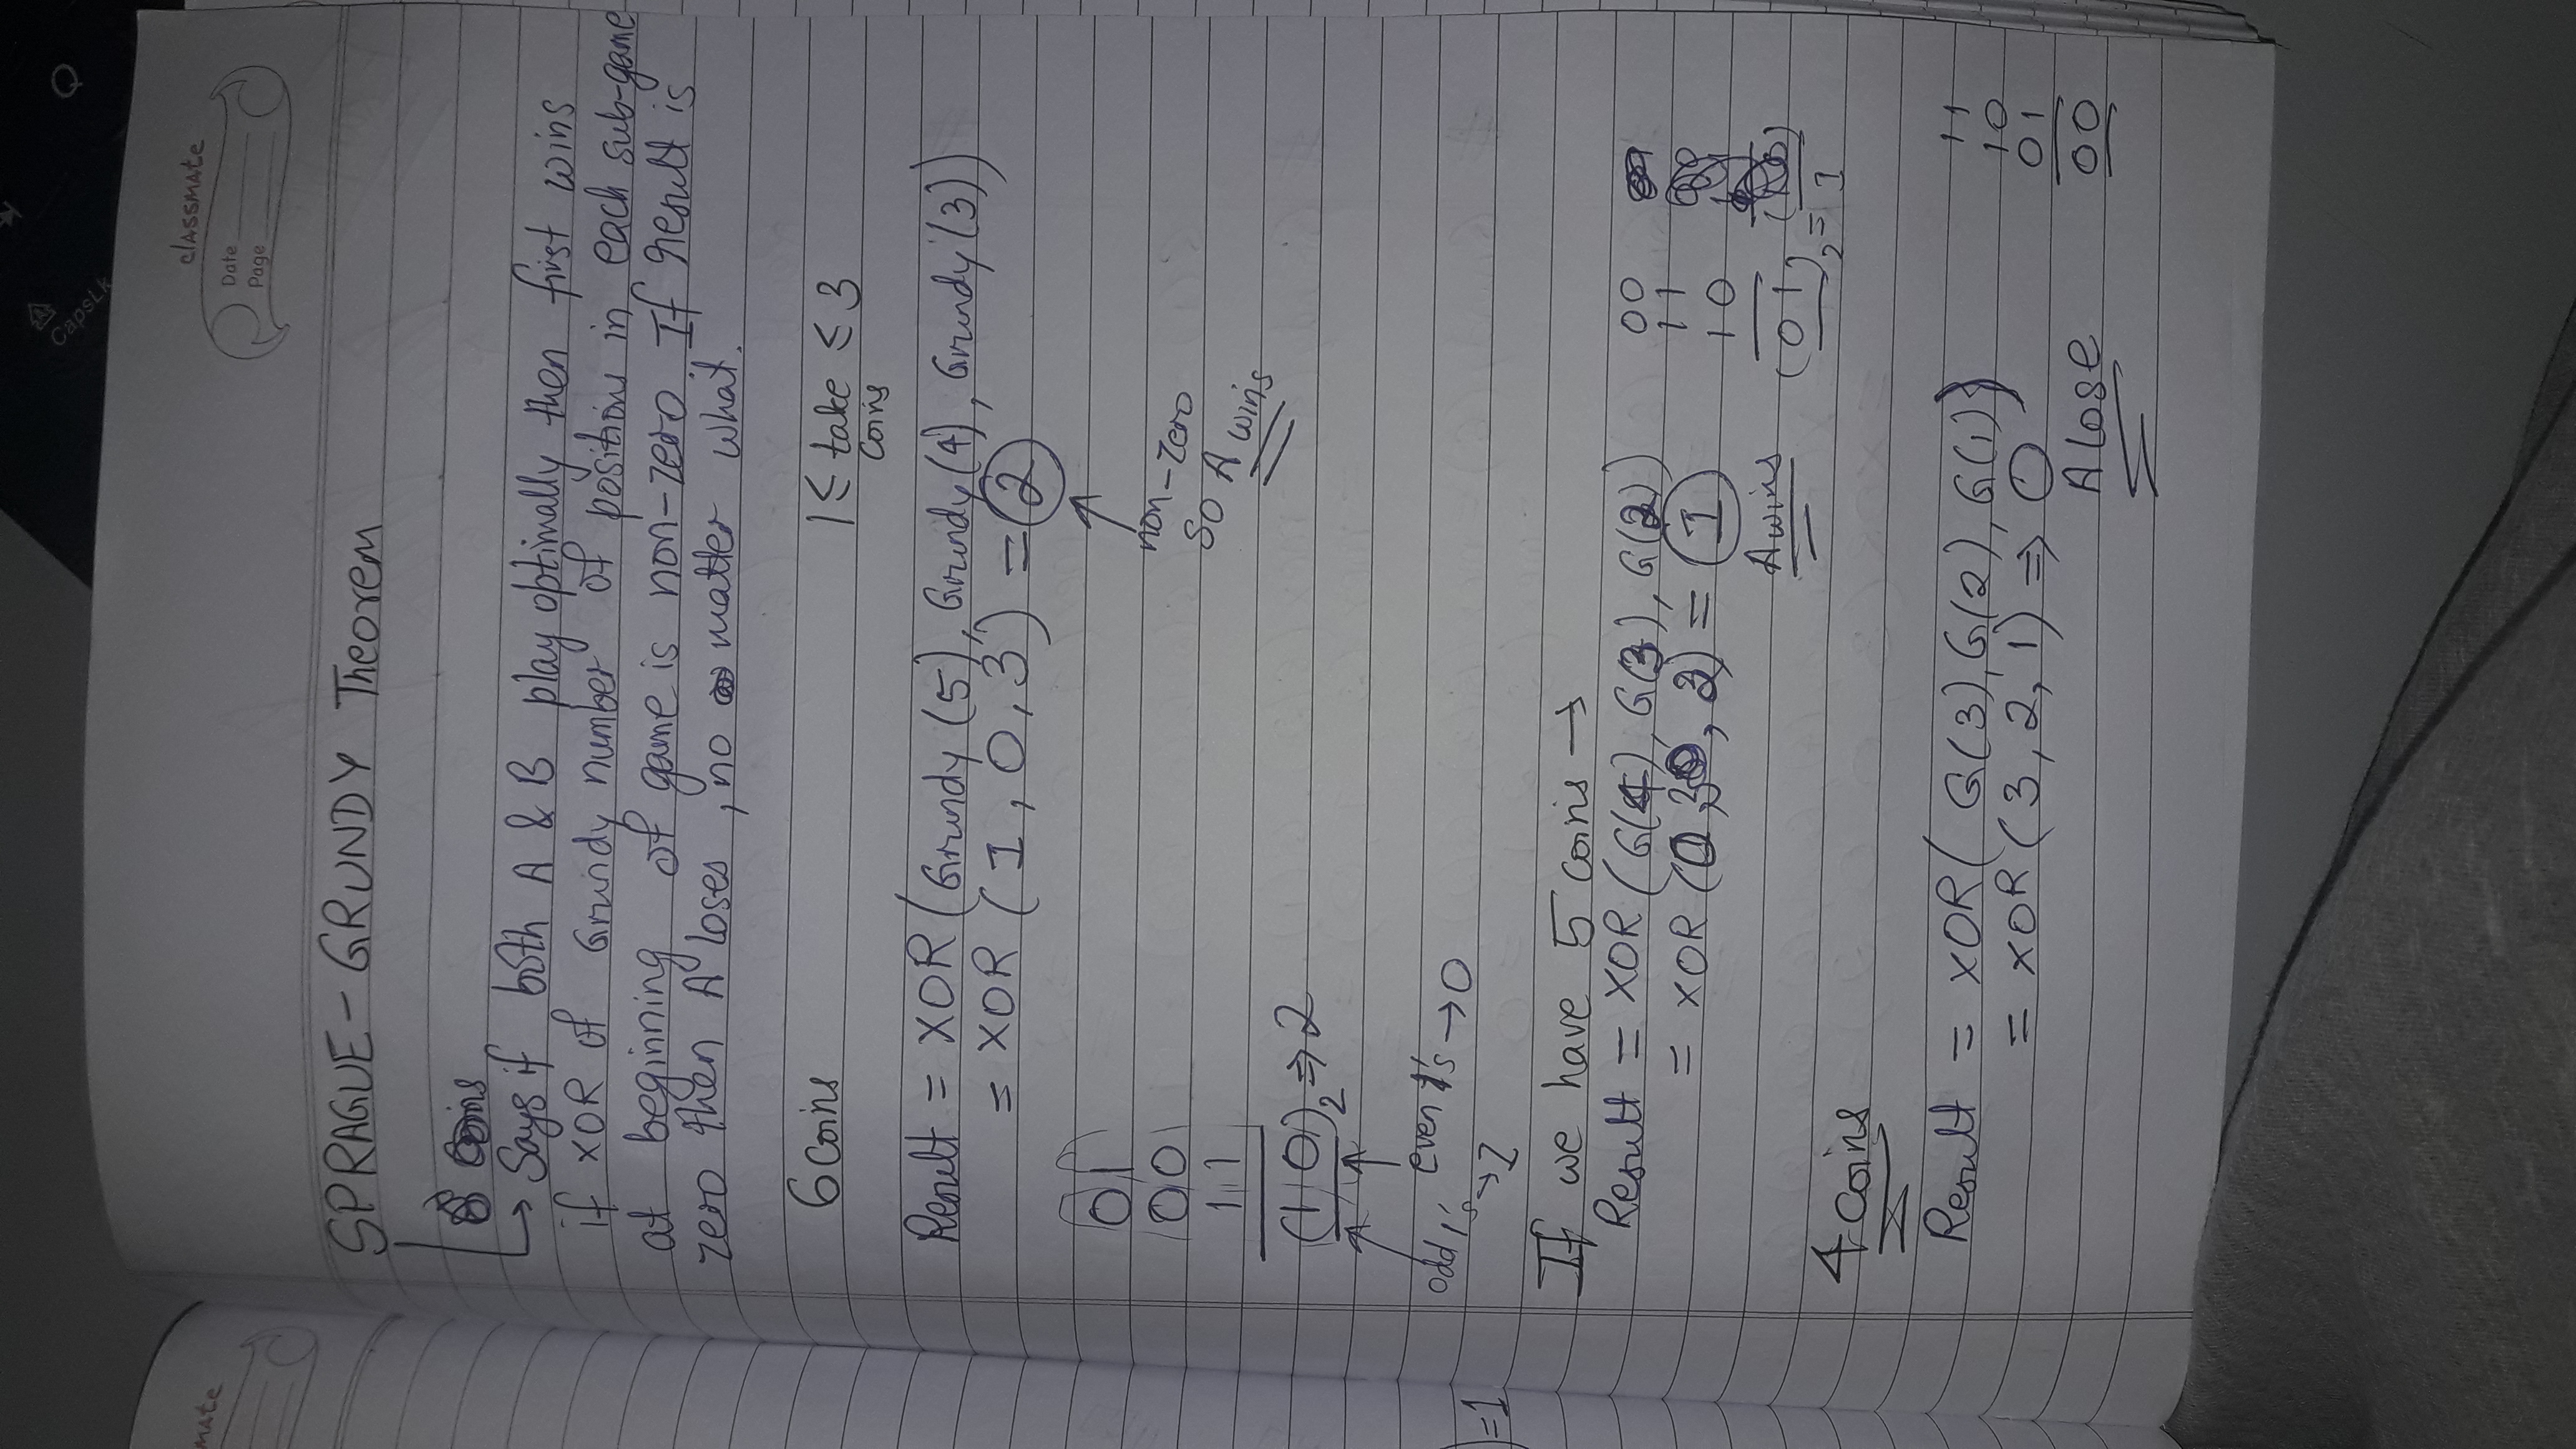 CapsLk
Q
mate
classmate
Date
Page
SPRAGUE - GRUNDY Theorem
Coins
→ Says if both A & B play optimally then first wins
if XOR of Grundy number of positions in each sub-game
at beginning of game is non-zero. If result is
zero then A loses, no matter what.
6 Coins
1 ≤ take ≤ 3
Coins
Result = XOR (Grundy (5), Grundy (4), Grundy (3))
= XOR (1, 0, 3) = 2
01
00
11
(10)₂ ⇒ 2
non-zero
So A wins
odd 1's → 1
even 1's → 0
=1
If we have 5 coins →
Result = XOR (G(4), G(3), G(2))
= XOR (0, 3, 2) = 1
A wins
00
11
10
(01)₂ = 1
4 coins
Result = XOR ( G(3), G(2), G(1))
= XOR (3, 2, 1) ⇒ 0
A lose
11
10
01
00